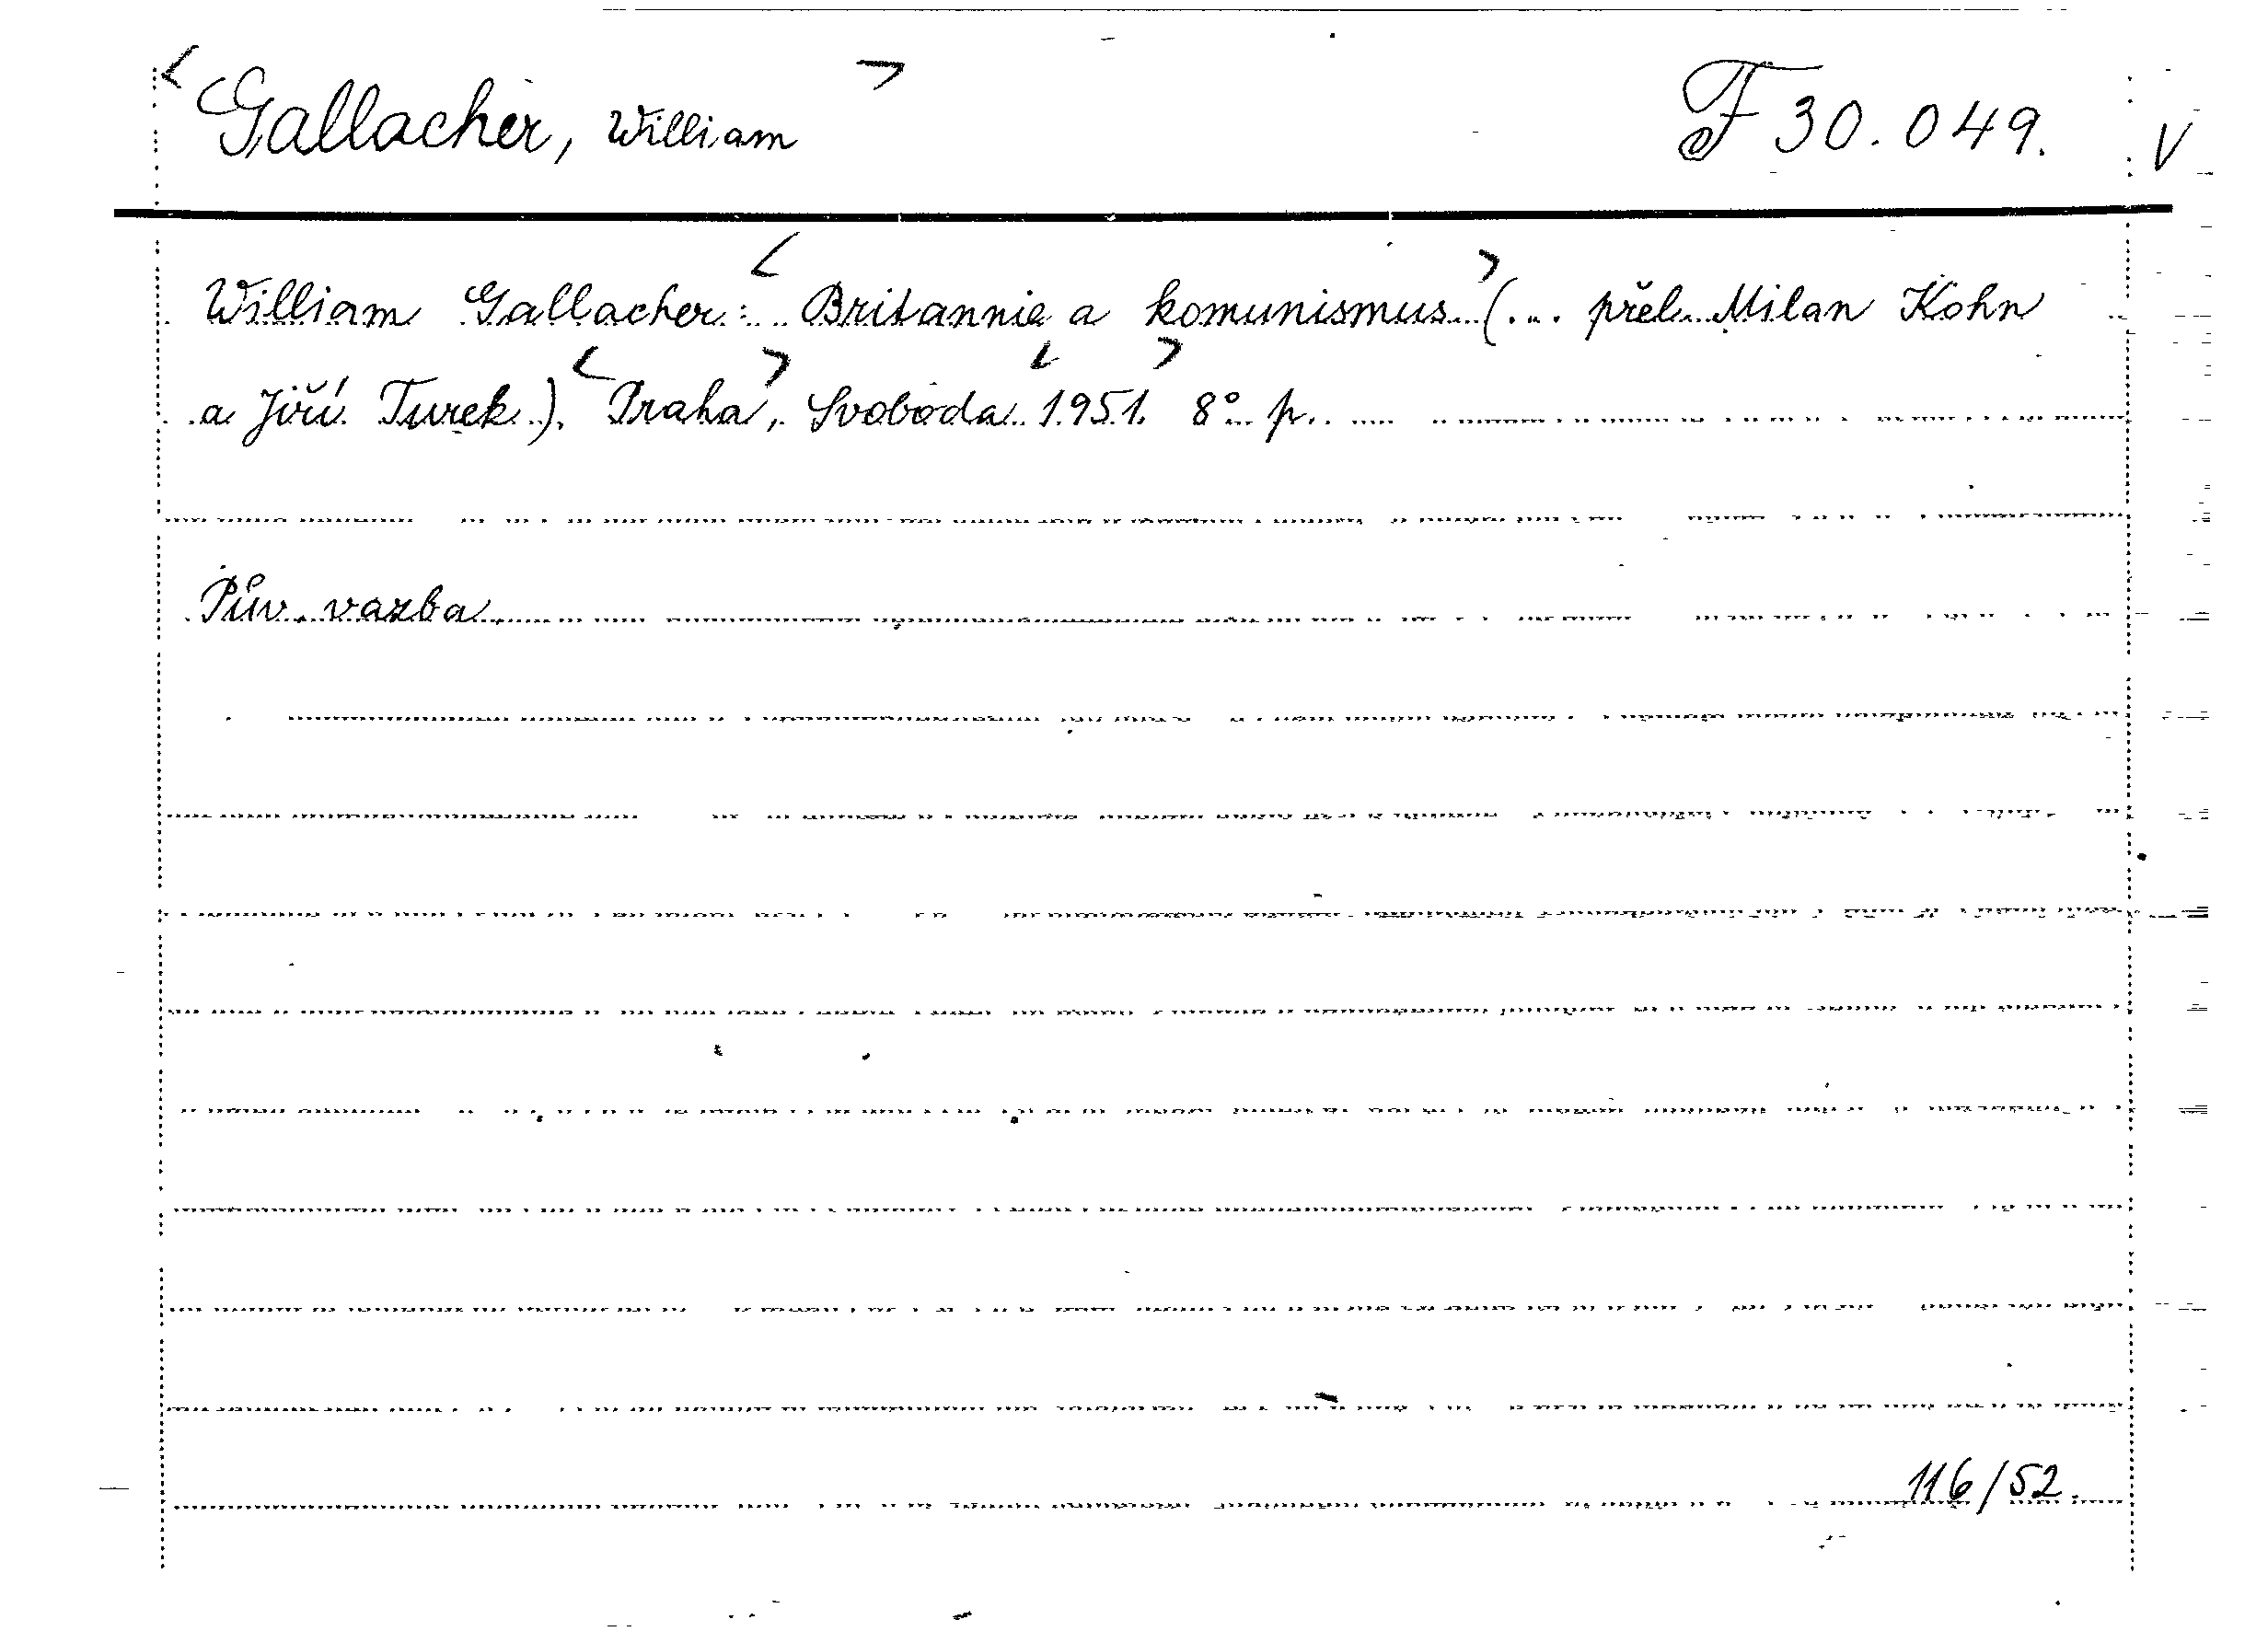 <Gallacher, William> F 30.049. V
William Gallacher: <Britannie a komunismus> (... přel. Milan Kohn
a Jiří Turek). <Praha>, Svoboda <1951.> 8° p.
Pův. vazba.
116/52.